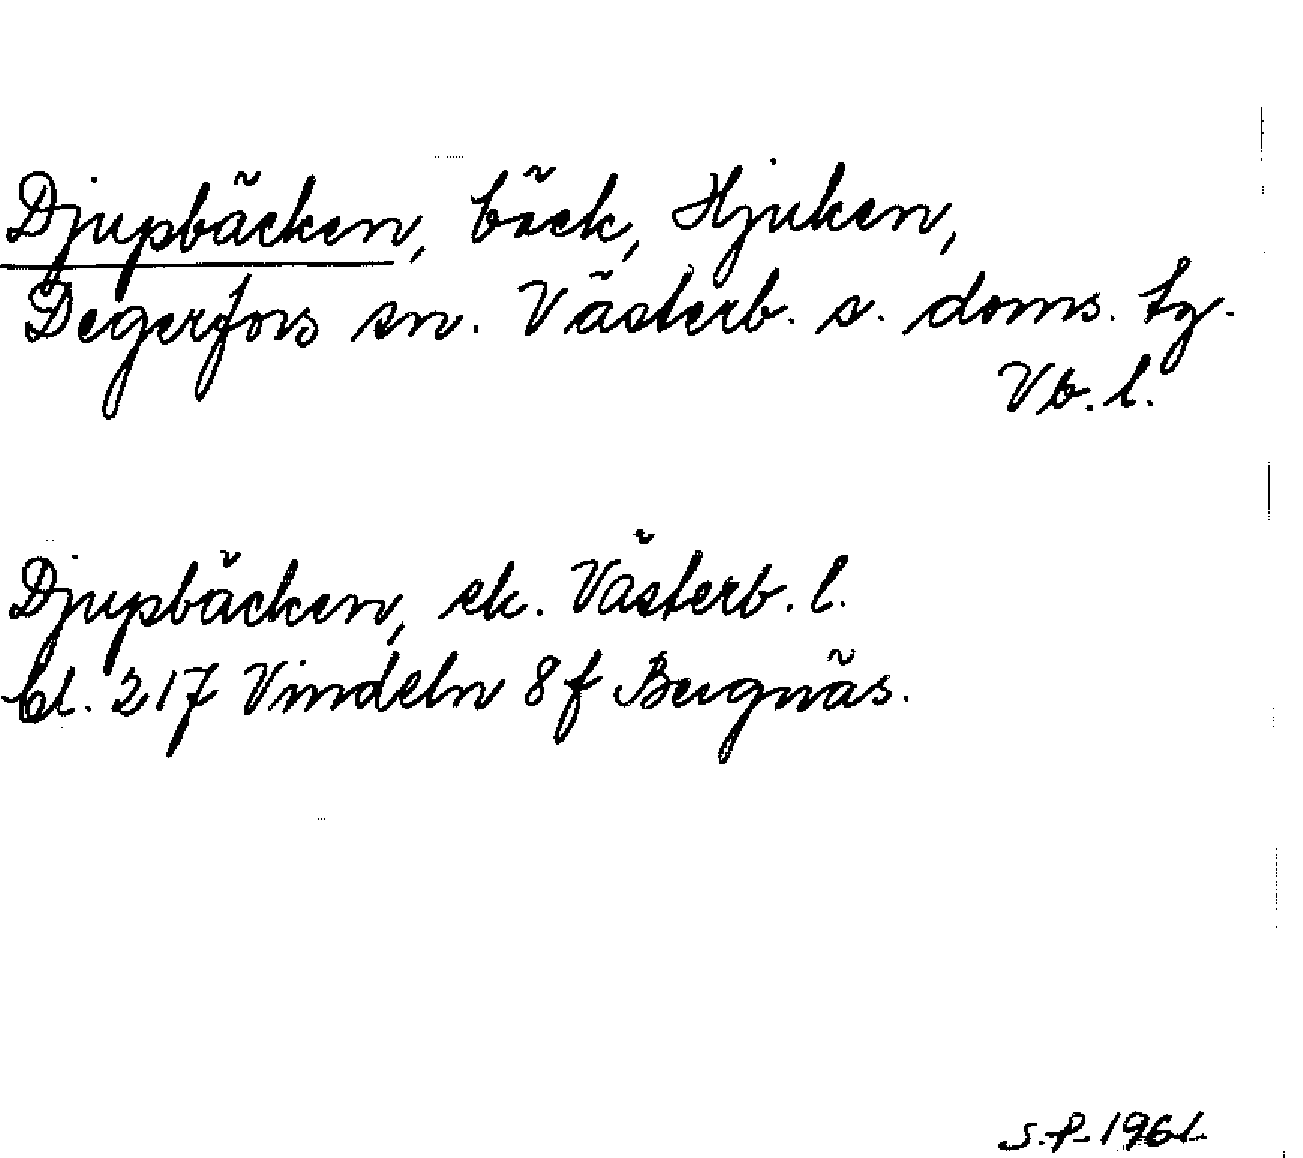 Djupbäcken, bäck, Hjuken,
Degerfors sn. Västerb. s. doms. tg.
Vb. l.
Djupbäcken, ek. Västerb. l.
bl. 217 Vindeln 8 f Bergnäs.
S.P. 1961